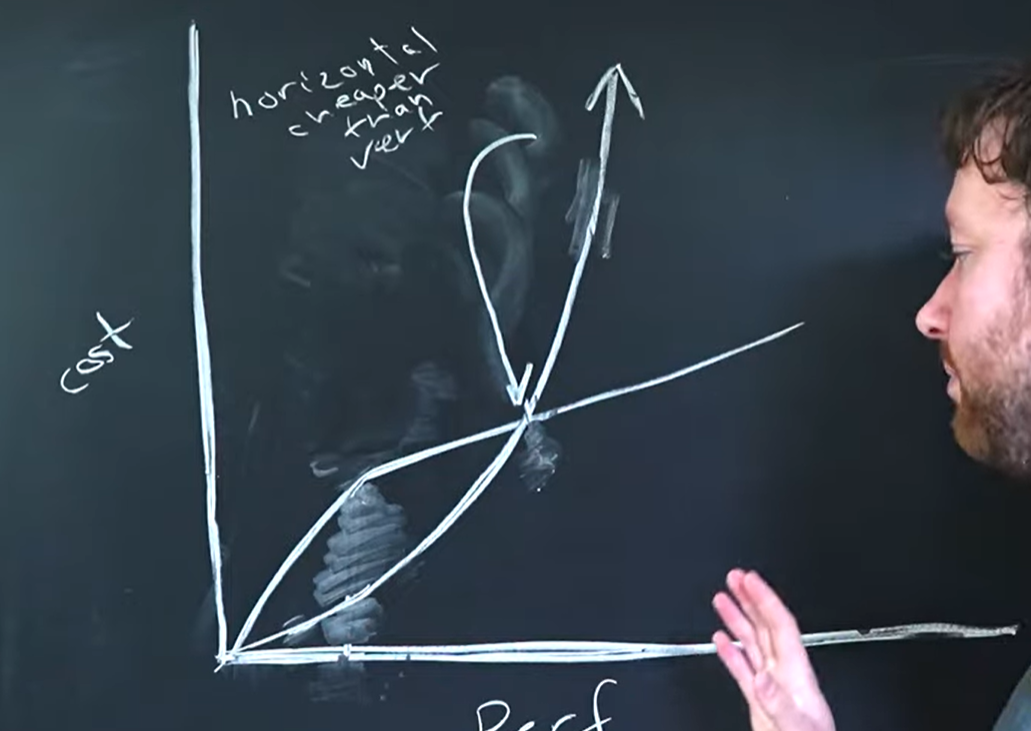 horizontal
cheaper
than
vert
cost
Perf